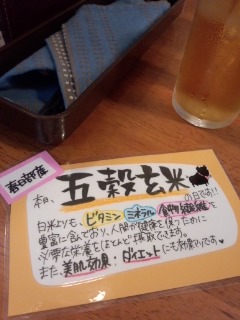 春日部産
本日、五穀玄米の日です!!
白米よりも、ビタミン ミネラル 食物繊維を
豊富に含んでおり、人間が健康を保つために
必要な栄養をほとんど摂取できます。
また、美肌効果、ダイエットにも効果的です♥